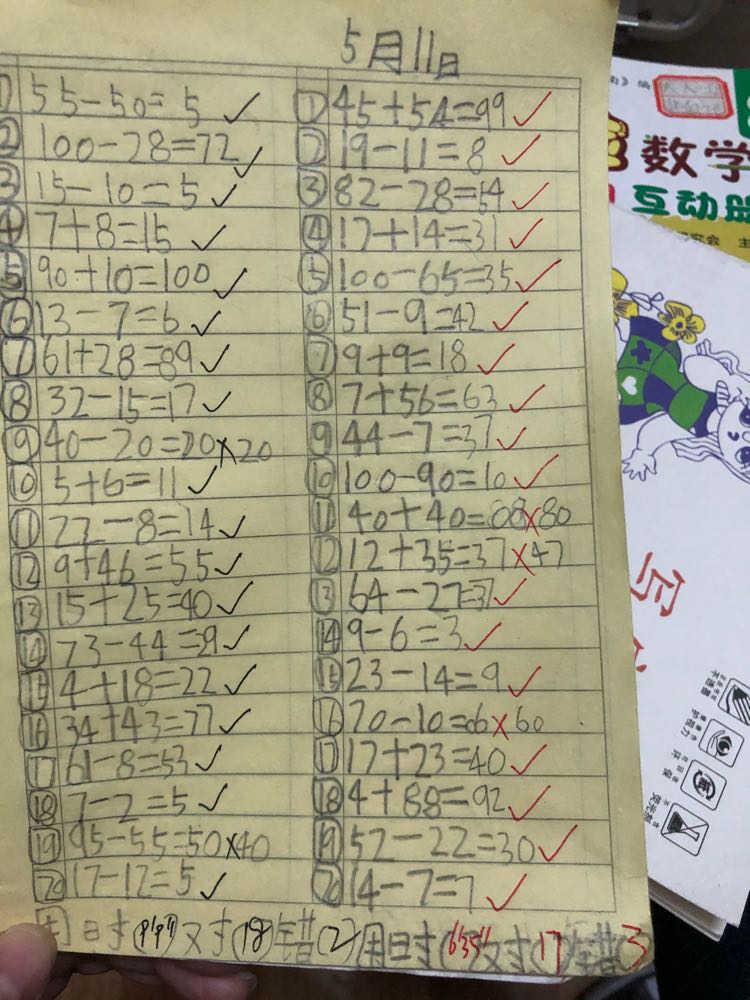 5月11日
① 55-50=5 ✓
② 100-28=72 ✓
③ 15-10=5 ✓
④ 7+8=15 ✓
⑤ 90+10=100 ✓
⑥ 13-7=6 ✓
⑦ 61+28=89 ✓
⑧ 32-15=17 ✓
⑨ 40-20=20×20
⑩ 5+6=11 ✓
⑪ 22-8=14 ✓
⑫ 9+46=55 ✓
⑬ 15+25=40 ✓
⑭ 73-44=29 ✓
⑮ 4+18=22 ✓
⑯ 34+43=77 ✓
⑰ 61-8=53 ✓
⑱ 7-2=5 ✓
⑲ 95-55=50×40
⑳ 17-12=5 ✓
用日寸 又寸(18)错(2)
① 45+54=99 ✓
② 19-11=8 ✓
③ 82-28=54 ✓
④ 17+14=31 ✓
⑤ 100-65=35 ✓
⑥ 51-9=42 ✓
⑦ 9+9=18 ✓
⑧ 7+56=63 ✓
⑨ 44-7=37 ✓
⑩ 100-90=10 ✓
⑪ 40+40=08×80
⑫ 12+35=37×47
⑬ 64-27=37 ✓
⑭ 9-6=3 ✓
⑮ 23-14=9 ✓
⑯ 70-10=06×60
⑰ 17+23=40 ✓
⑱ 4+88=92 ✓
⑲ 52-22=30 ✓
⑳ 14-7=7 ✓
用日寸(6'35")又寸(17)错(3)
数学
互动
写